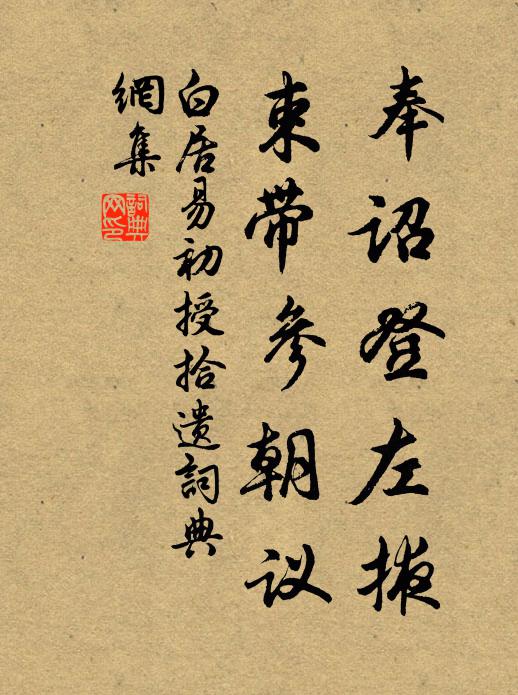 奉詔登左掖
束帶參朝议
白居易初授拾遺詞典
網集
詞典網印